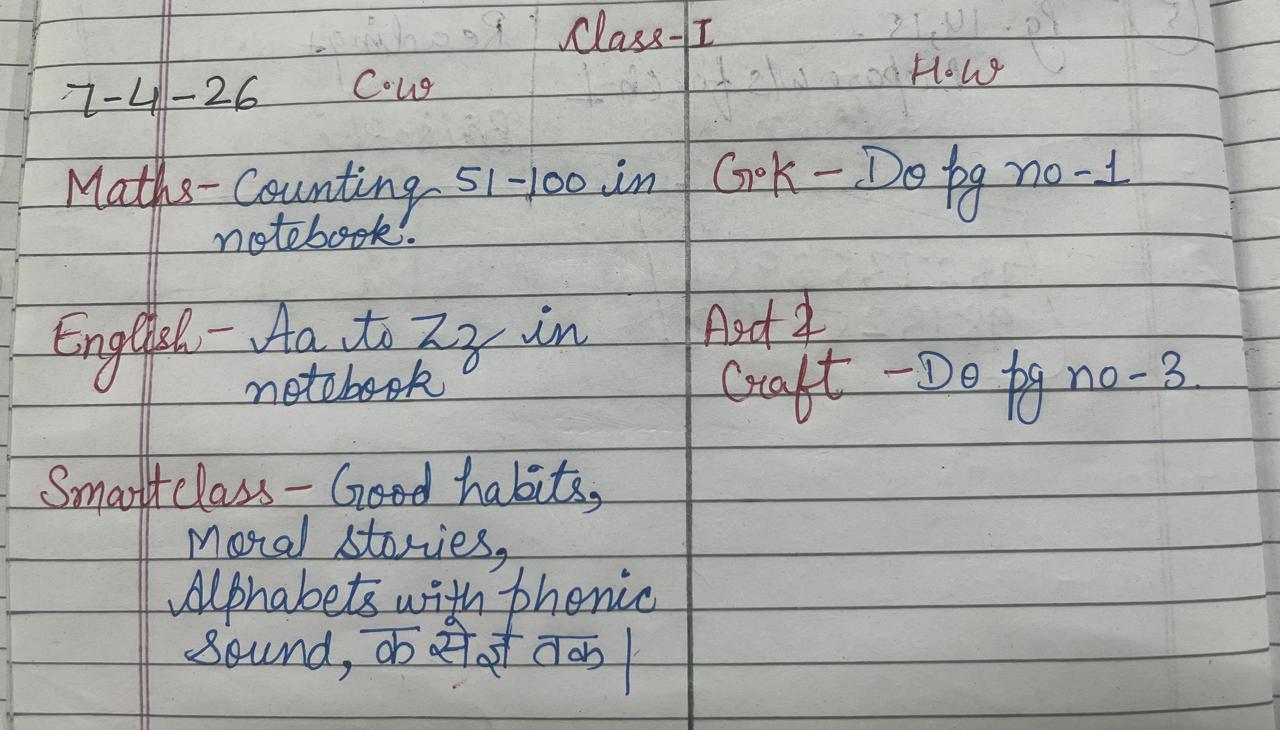 Class-I
7-4-26 C.W
H.W
Maths- Counting 51-100 in
notebook.
English- Aa to Zz in
notebook
Smartclass- Good habits,
Moral stories,
Alphabets with phonic
sound, क से ज्ञ तक |
G.K - Do pg no-1
Art &
Craft - Do pg no-3.